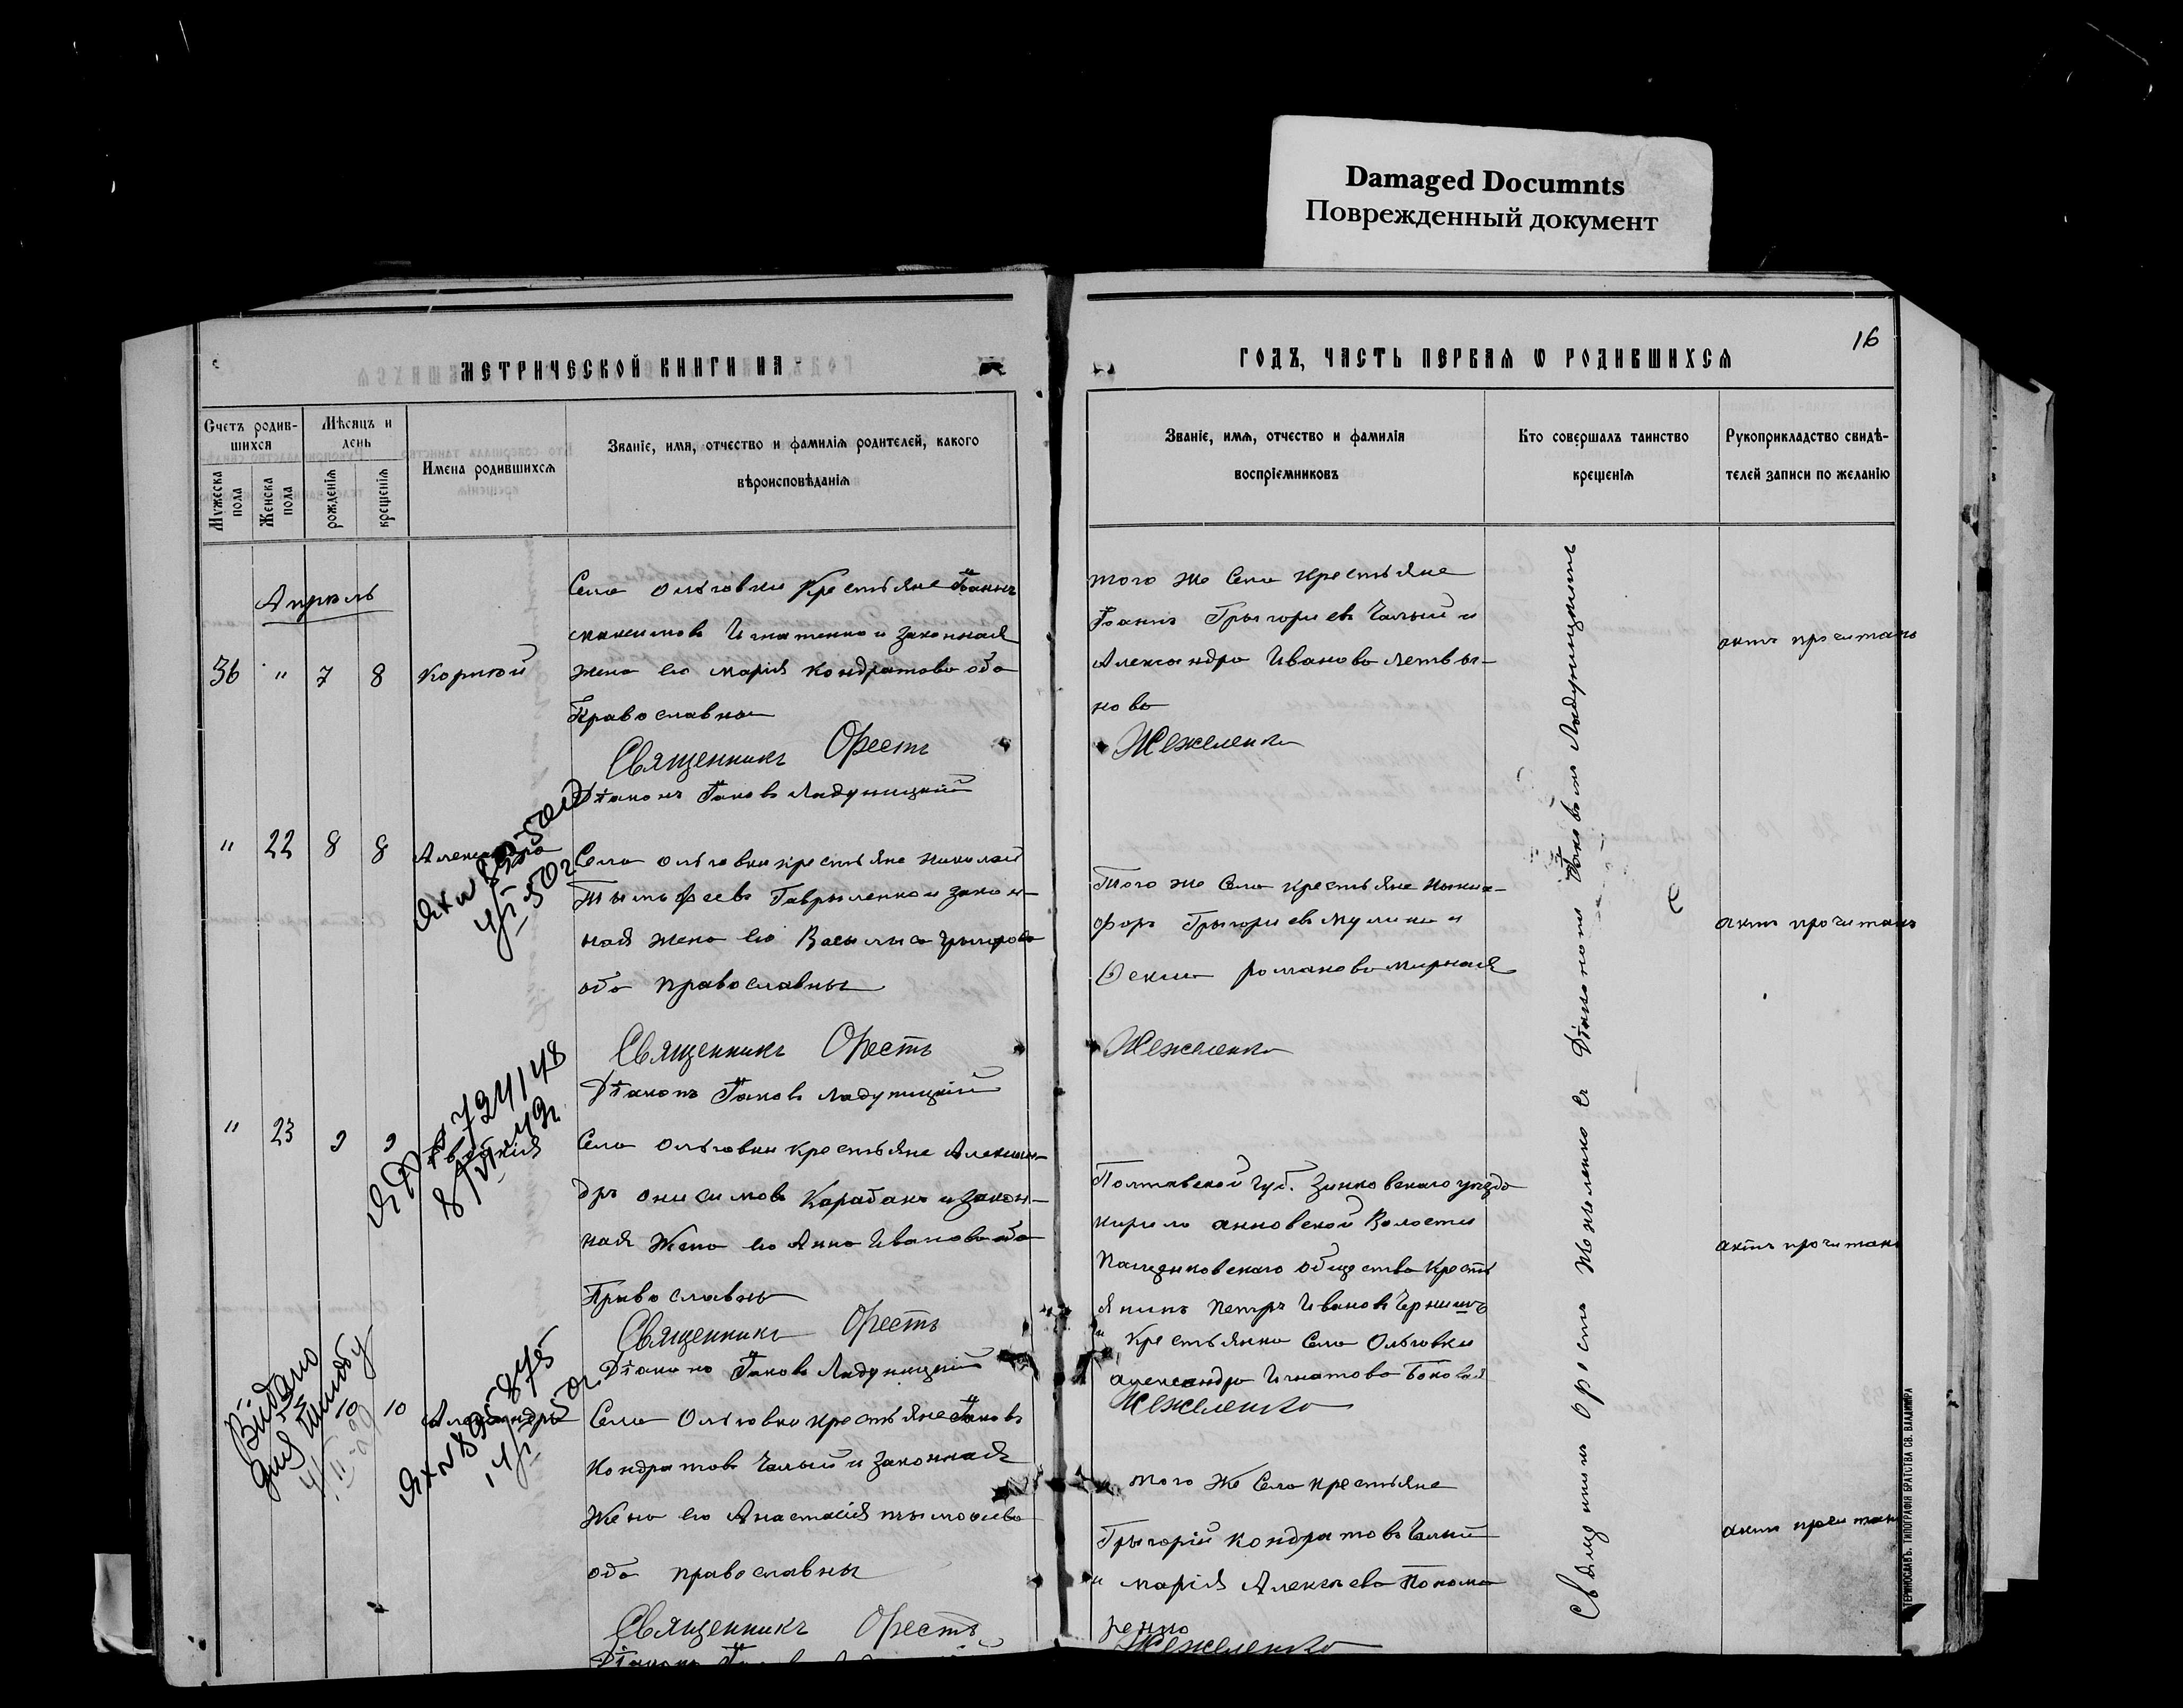 Damaged Documnts
Поврежденный документ
16
МЕТРИЧЕСКОЙ КНИГИ НА
ГОДЪ, ЧАСТЬ ПЕРВАЯ Ѡ РОДИВШИХСЯ
Счетъ родив-
шихся
Мѣсяцъ и
день
Мужеска
пола
Женска
пола
рожденія
крещенія
Имена родившихся
Званіе, имя, отчество и фамилія родителей, какого
вѣроисповѣданія
Званіе, имя, отчество и фамилія
воспріемниковъ
Кто совершалъ таинство
крещенія
Рукоприкладство свидѣ-
телей записи по желанію
Апрѣль
36 " 7 8 Корнюй
Села Ольговки Крестьяне Іоаннъ
Максимовъ Игнатенко и законная
жена его Марія Кондратова оба
Православны
Священникъ Орестъ
Діаконъ Іаковъ Ладуницкій
того же Села крестьяне
Іоаннъ Грыгориевъ Чалый и
Александра Иванова Летвы-
нова
Нежеленко
актъ прочитанъ
" 22 8 8 Александра
Села Ольговки крестьяне Николай
Тымофеевъ Гаврыленко и закон-
ная жена его Васылиса Грыгорова
оба православны
Священникъ Орестъ
Діаконъ Іаковъ Ладуницкій
Того же Села крестьяне Ныки-
форъ Грыгориевъ Мулика и
Романова Мирная
Нежеленко
актъ прочитанъ
" 23 9 9
724/48
Села Ольговки крестьяне Алексан-
дръ Онисимовъ Карабанъ и закон-
ная Жена его Анна Иванова оба
Православны
Священникъ Орестъ
Діаконъ Іаковъ Ладуницкій
Полтавской Губ. Зинковскаго уезда
Кирило Анновской Волости
общества Крестъ
янинъ Петръ Ивановъ Чернышъ
и Крестьянка Села Ольговки
Александра Игнатова Боковая
Нежеленко
актъ прочитанъ
Видано
10 10 Александра
Села Ольговки крестьяне Іаковъ
Кондратовъ Чалый и Законная
Жена его Анастасія Тымофиева
оба православны
Священникъ Орестъ
Діаконъ
того Же Села крестьяне
Грыгорій Кондратовъ Чалый
и Марія Алексѣева Понома
ренко
Нежеленко
актъ прочитанъ
Священникъ Орестъ Нежеленко съ Діакономъ Іаковомъ Ладуницкимъ
ТИПОГРАФІЯ БРАТСТВА СВ. ВЛАДИМІРА